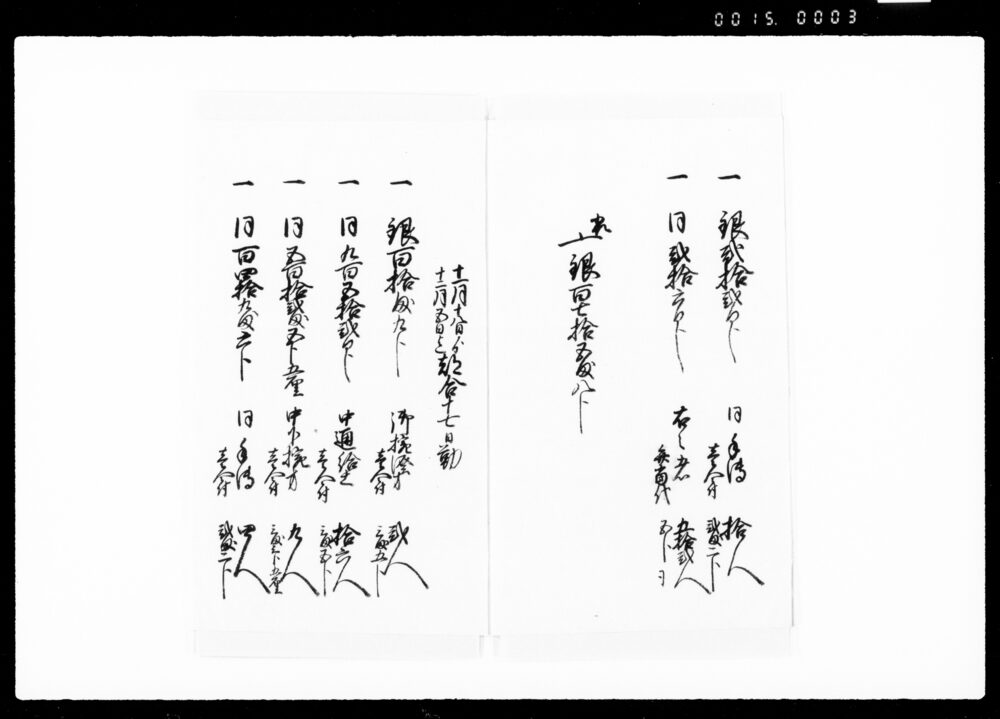 0015. 0003
一 銀弐拾弐匁 同手傳 拾人
壱人付 弐匁二分
一 同弐拾六匁 右之者 五拾弐人
五分ツヽ
〆 銀百七拾五匁八分
十一月十八日より
十二月五日迄都合十七日勤
一 銀百拾匁九分 弐人
壱人付 三匁五分
一 同九百五拾弐匁 中通給仕 拾六人
壱人付 三匁五分
一 同五百拾弐匁五分五厘 中小椀方 九人
壱人付 三匁三分五厘
一 同百四拾九匁六分 同手傳 四人
壱人付 弐匁二分